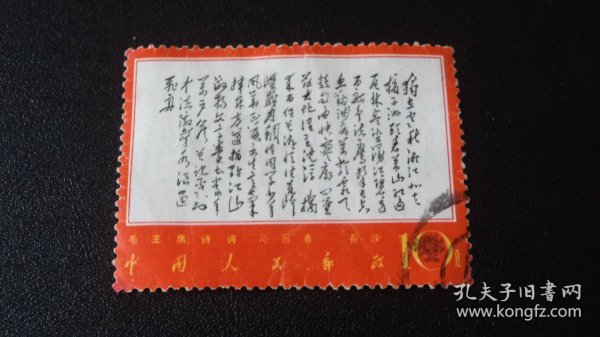 独立寒秋湘江北去
橘子洲头看万山红遍
层林尽染漫江碧透
百舸争流鹰击长空
鱼翔浅底万类霜天
竞自由怅寥廓问
苍茫大地谁主沉浮携
来百侣曾游忆往昔峥
嵘岁月稠恰同学少年
风华正茂书生意气
挥斥方遒指点江山
激扬文字粪土当年
万户侯曾记否到
中流击水浪遏
飞舟
毛主席诗词 沁园春 长沙
中国人民郵政 10分
孔夫子旧书网
www.kongfz.com